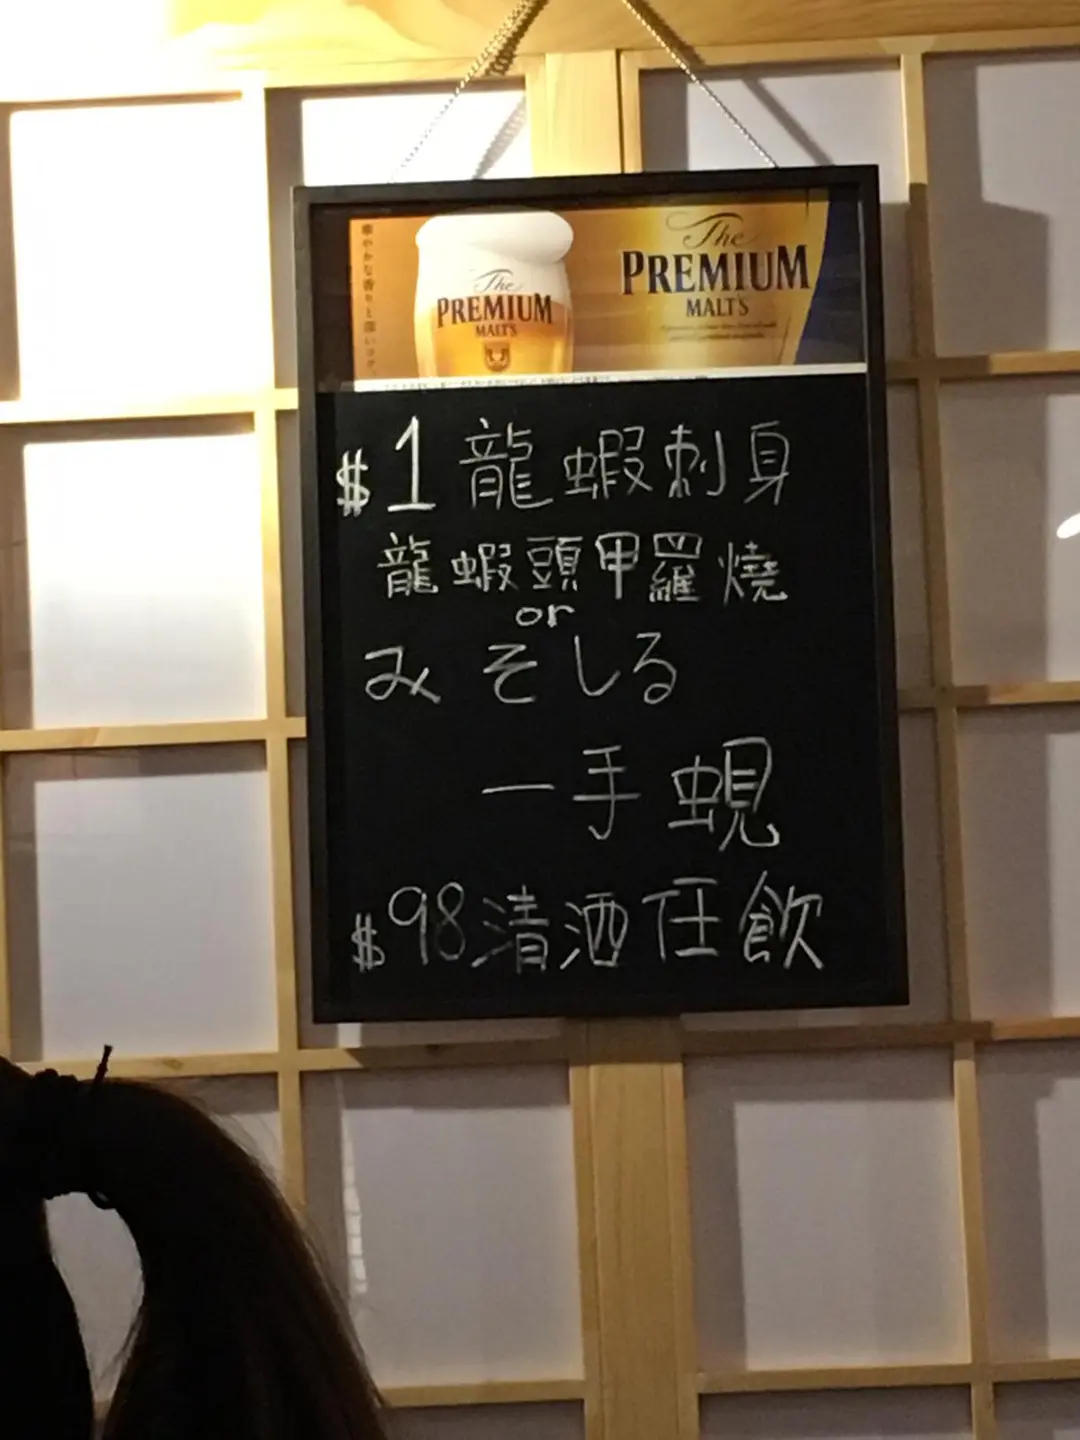 華やかな香りと深いコク。
The
PREMIUM
MALT'S
The
PREMIUM
MALT'S
$1龍蝦刺身
龍蝦頭甲羅燒
or
みそしる
一手蜆
$98清酒任飲